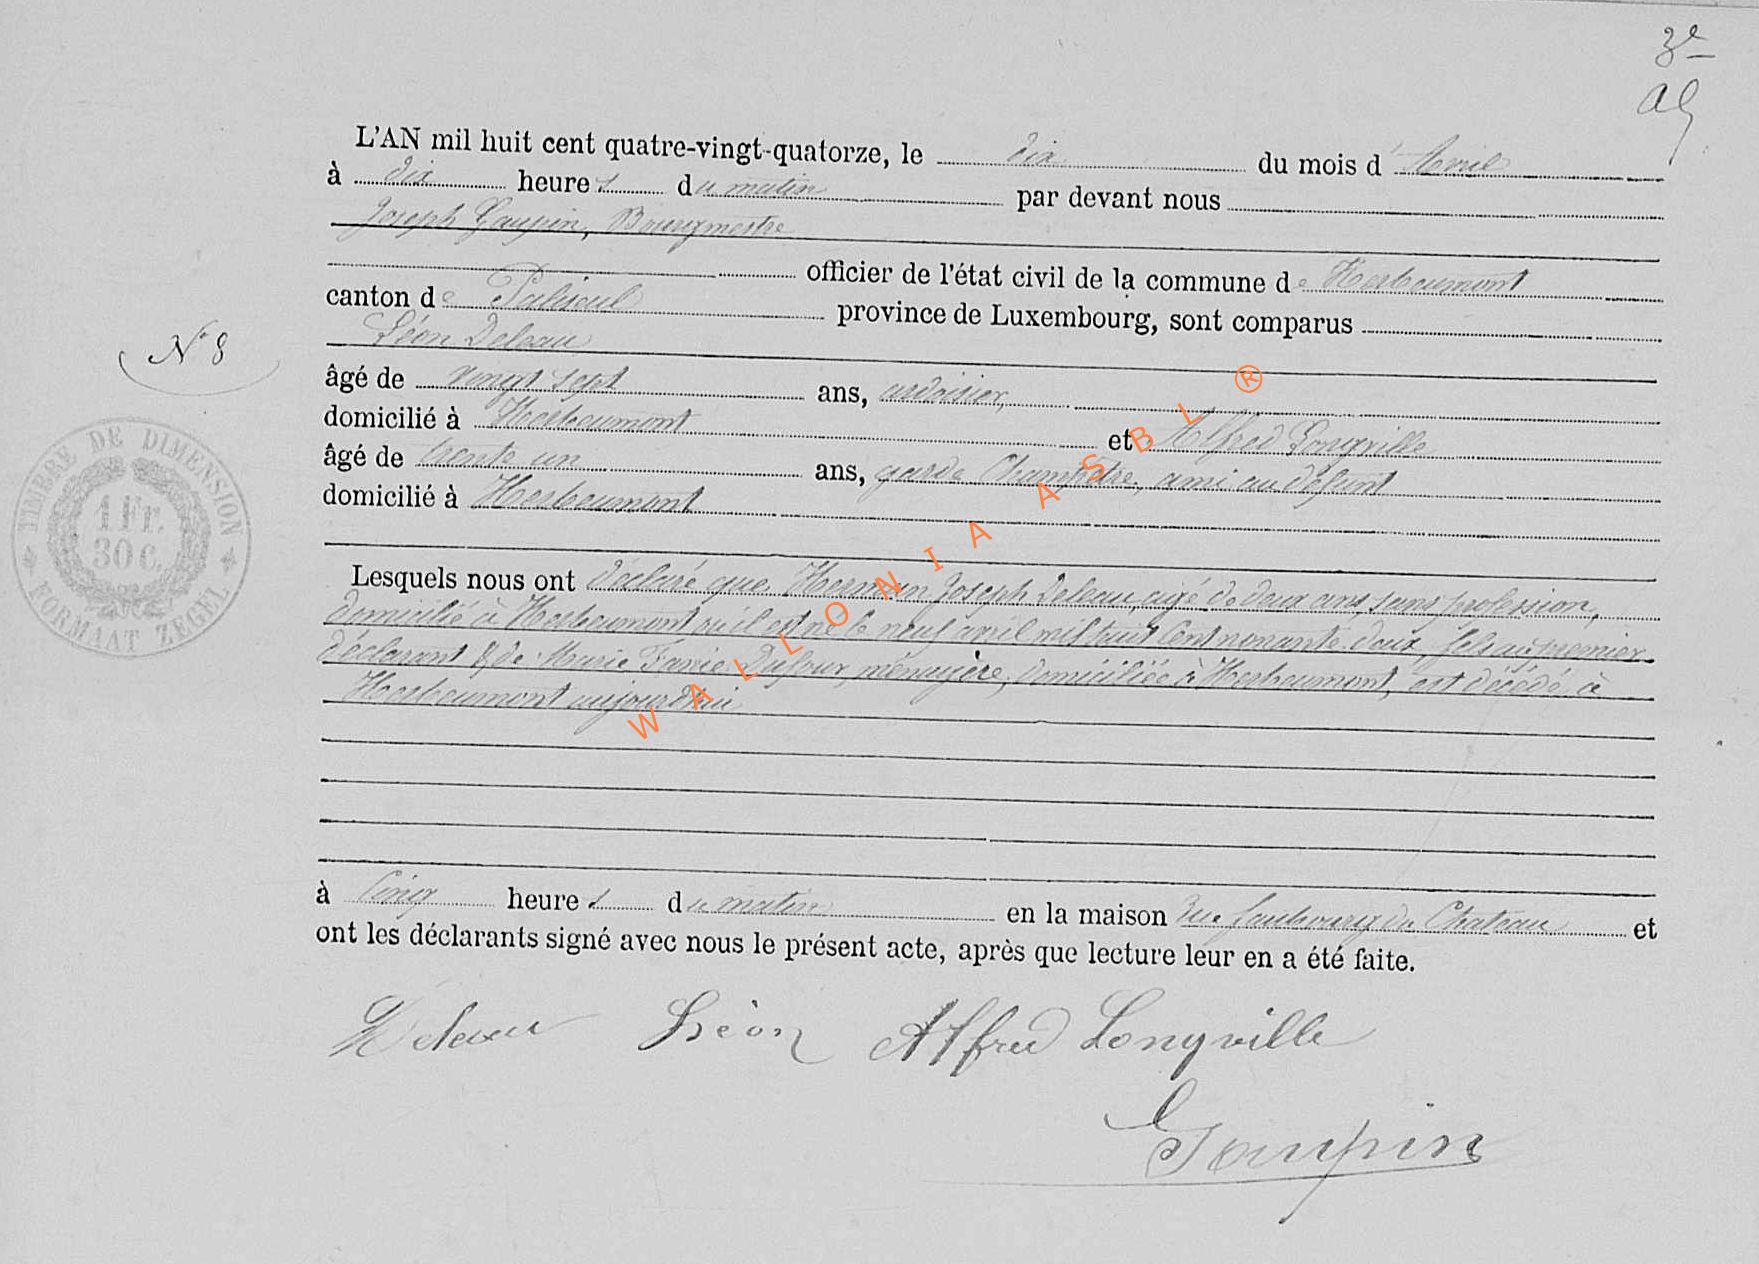 3e
al
L'AN mil huit cent quatre-vingt-quatorze, le dix du mois d'Avril
à dix heures du matin par devant nous
Joseph Goupin, Bourgmestre
officier de l'état civil de la commune de Herbeumont
canton de Paliseul province de Luxembourg, sont comparus
Léon Deleau
âgé de vingt sept ans, ardoisier,
domicilié à Herbeumont et Alfred Longville
âgé de trente un ans, garde Champêtre, ami au défunt
domicilié à Herbeumont
N° 8
TIMBRE DE DIMENSION
1 Fr.
30 C.
FORMAAT ZEGEL
Lesquels nous ont déclaré que Herman Joseph Deleau, agé de deux ans, sans profession,
domicilié à Herbeumont où il est né le neuf avril mil huit cent nonante deux, fils au premier
déclarant & de Marie Dufour, ménagère, domiciliée à Herbeumont, est décédé à
Herbeumont aujourd'hui
à cinq heures du matin en la maison rue faubourg du Chateau et
ont les déclarants signé avec nous le présent acte, après que lecture leur en a été faite.
Deleau Léon Alfred Longville
Goupin
WALLONIA ASBL ®